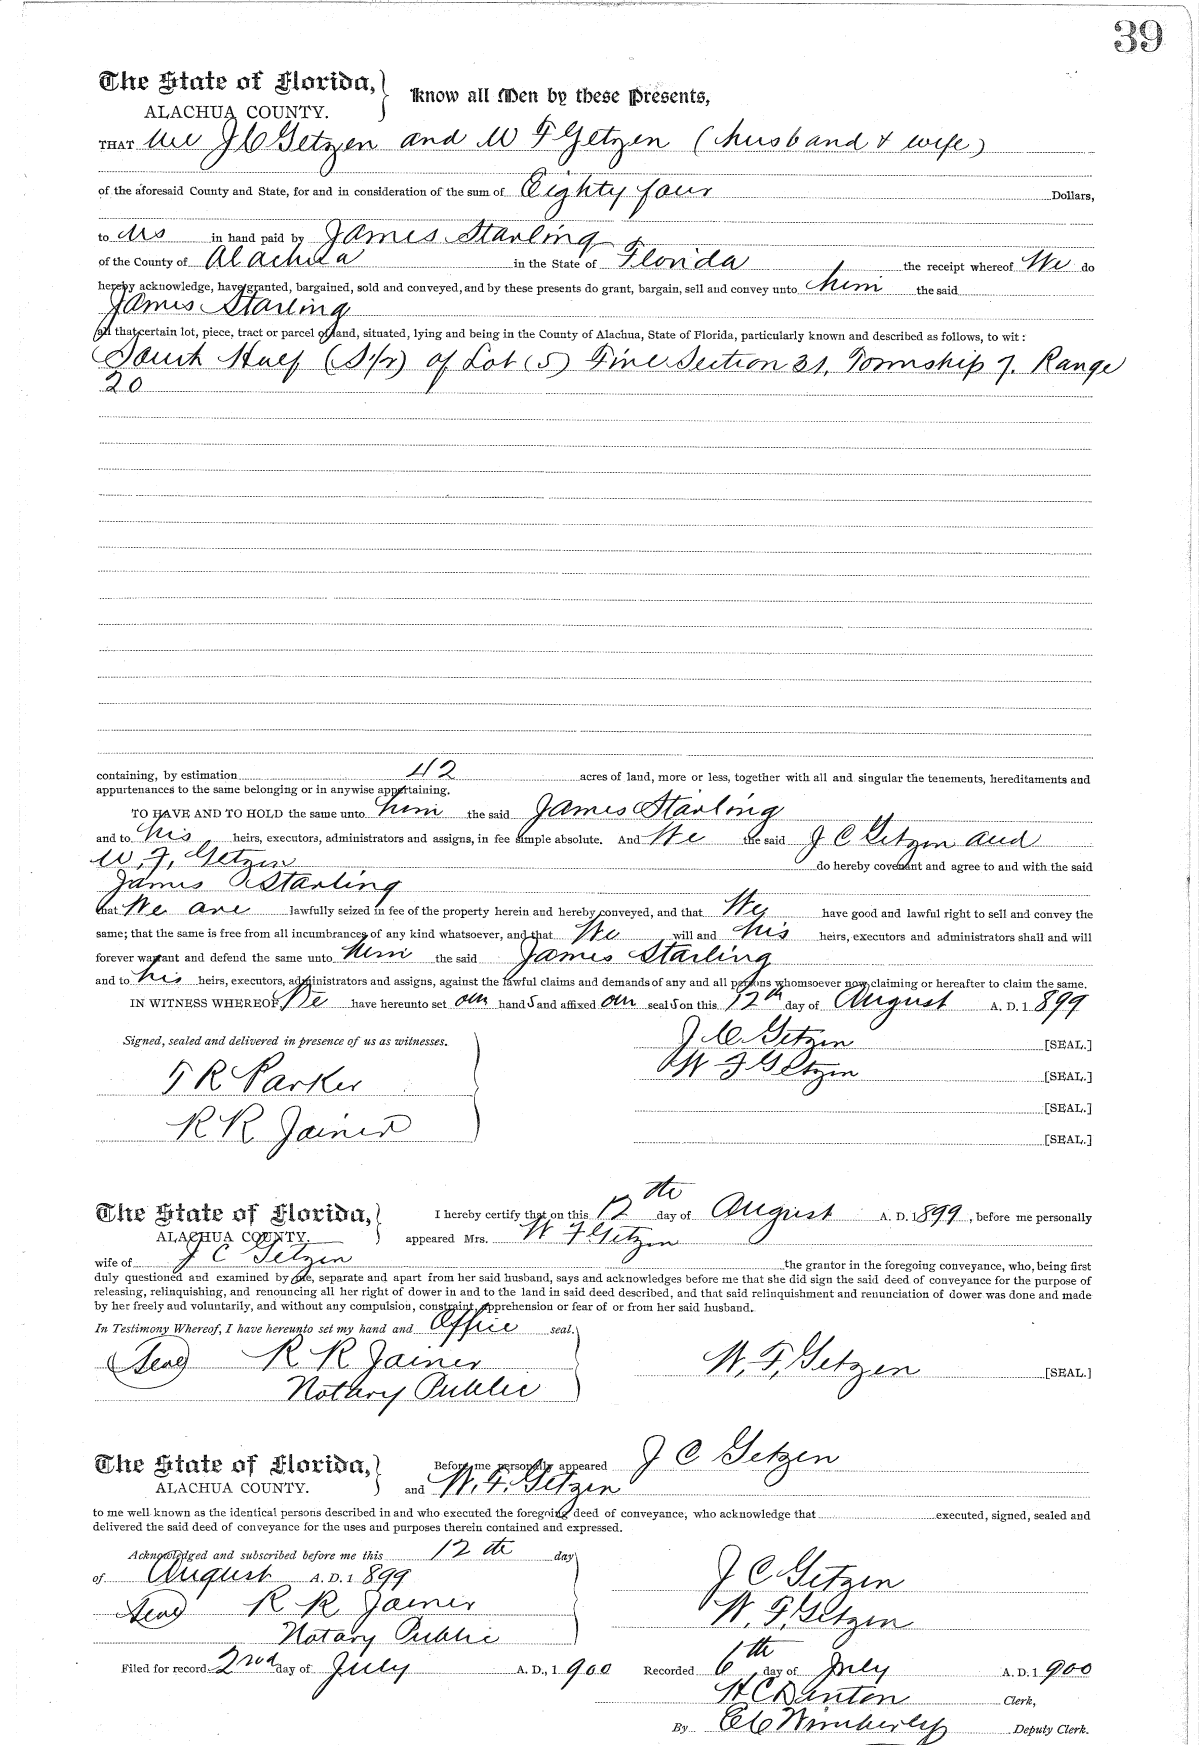 39
The State of Florida,
ALACHUA COUNTY.
Know all Men by these Presents,
THAT We J C Getzen and W F Getzen (husband & wife)
of the aforesaid County and State, for and in consideration of the sum of Eighty four Dollars,
to us in hand paid by James Starling
of the County of Alachua in the State of Florida the receipt whereof We do
hereby acknowledge, have granted, bargained, sold and conveyed, and by these presents do grant, bargain, sell and convey unto him the said
James Starling
all that certain lot, piece, tract or parcel of land, situated, lying and being in the County of Alachua, State of Florida, particularly known and described as follows, to wit:
South Half (S ½) of Lot (5) Five Section 31, Township 7. Range
20
containing, by estimation 42 acres of land, more or less, together with all and singular the tenements, hereditaments and
appurtenances to the same belonging or in anywise appertaining.
TO HAVE AND TO HOLD the same unto him the said James Starling
and to his heirs, executors, administrators and assigns, in fee simple absolute. And We the said J C Getzen and
W. F. Getzen do hereby covenant and agree to and with the said
James Starling
that We are lawfully seized in fee of the property herein and hereby conveyed, and that We have good and lawful right to sell and convey the
same; that the same is free from all incumbrances of any kind whatsoever, and that We will and his heirs, executors and administrators shall and will
forever warrant and defend the same unto him the said James Starling
and to his heirs, executors, administrators and assigns, against the lawful claims and demands of any and all persons whomsoever now claiming or hereafter to claim the same.
IN WITNESS WHEREOF We have hereunto set our hands and affixed our seals on this 12th day of August A. D. 1899
Signed, sealed and delivered in presence of us as witnesses.
J C Getzen [SEAL.]
W F Getzen [SEAL.]
T R Parker
[SEAL.]
R R
[SEAL.]
The State of Florida,
ALACHUA COUNTY.
I hereby certify that on this 12th day of August A. D. 1899, before me personally
appeared Mrs. W F Getzen
wife of J C Getzen the grantor in the foregoing conveyance, who, being first
duly questioned and examined by me, separate and apart from her said husband, says and acknowledges before me that she did sign the said deed of conveyance for the purpose of
releasing, relinquishing, and renouncing all her right of dower in and to the land in said deed described, and that said relinquishment and renunciation of dower was done and made
by her freely and voluntarily, and without any compulsion, constraint, apprehension or fear of or from her said husband.
In Testimony Whereof, I have hereunto set my hand and Office seal.
(Seal) R R
W. F. Getzen [SEAL.]
Notary Public
The State of Florida,
ALACHUA COUNTY.
Before me personally appeared J C Getzen
and W. F. Getzen
to me well known as the identical persons described in and who executed the foregoing deed of conveyance, who acknowledge that executed, signed, sealed and
delivered the said deed of conveyance for the uses and purposes therein contained and expressed.
Acknowledged and subscribed before me this 12th day
of August A. D. 1899
J C Getzen
(Seal) R R
W. F. Getzen
Notary Public
Filed for record 2nd day of July A. D., 1900
Recorded 6th day of July A. D. 1900
H C Denton Clerk,
By Wimberly Deputy Clerk.